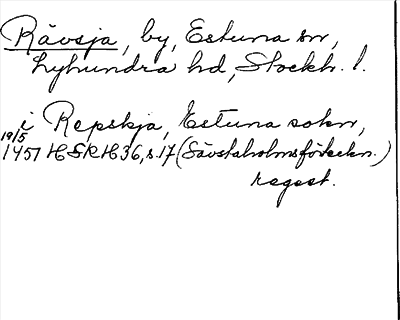 Rävsja, by, Estuna sn,
Lyhundra hd, Stockh. l.
i Repskja, Estuna sokn,
19/5
1451 HSRH36, s. 17 (Sävstaholmsförteckn.)
regest.